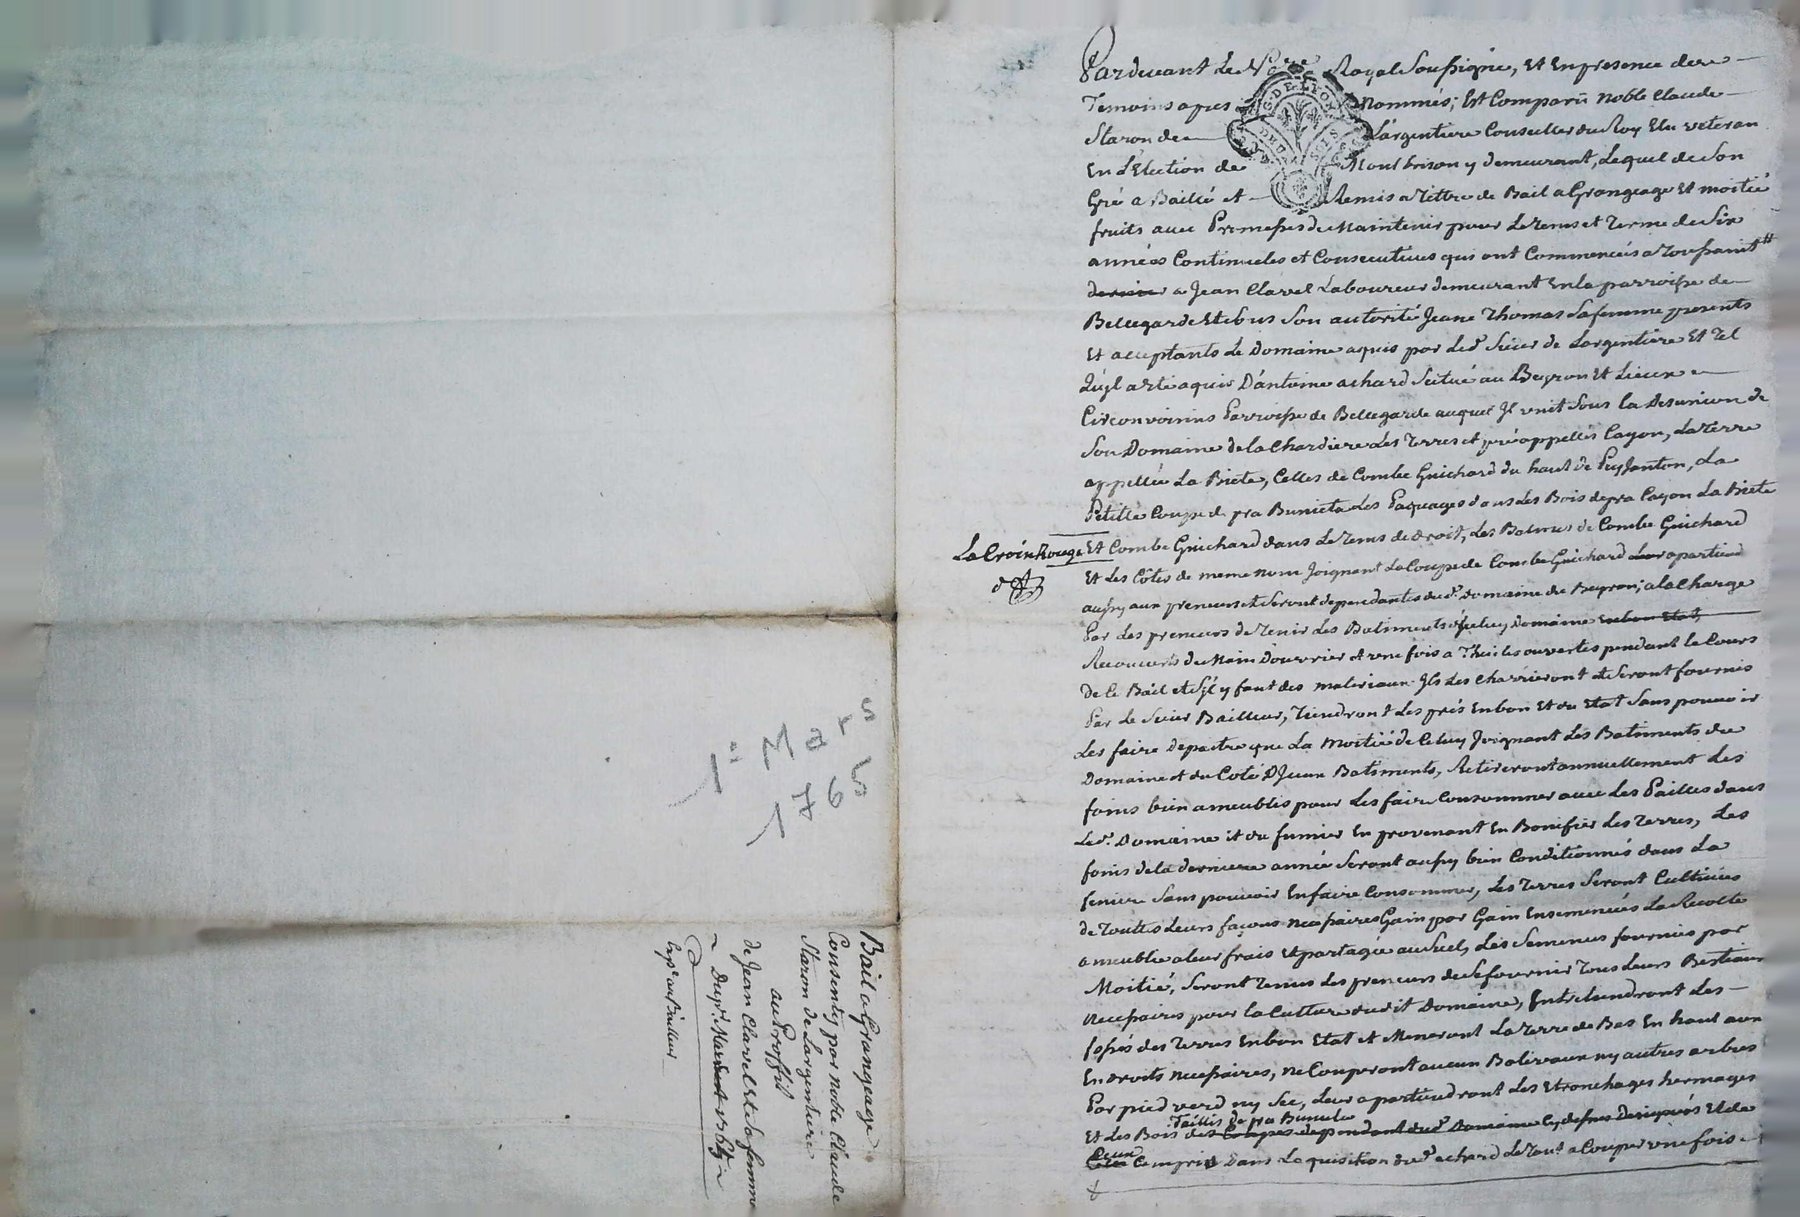 1er Mars
1765
Bail a Grangeage
Consenty par noble Claude
Staron de Largentiere
au Proffit
de Jean Clavel et Sa femme
Du 1er Mars 1765
Expn au Bailleur
Pardevant Le Nore Royal Soussigné, Et En presence dere
Temoins apres Nommés; Est Comparü Noble Claude
Staron de L'argentiere Conseiller du Roy Elu veteran
En L'Election de Montbrison y demeurant, Lequel de Son
Gré a Baillé et Remis a Tittre de Bail a Grangeage Et moitié
fruits avec Promesses de Maintenir pour Le tems et Terme de Six
années Continueles et Consecutives qui ont Commencées a Toussaint
dernier a Jean Clavel Laboureur demeurant En la parroisse de
Bellegarde Et sous Son autorité Jeane Thomas Sa femme presents
Et acceptants Le Domaine aquis par Led. Sieur de Largentiere Et Tel
qu'jl a eté aquis D'antoine achard Scitué au Beyron Et Lieux
Circonvoisins Parroisse de Bellegarde auquel Jl unit Sous la Desunion de
Son Domaine de la Chardiere Les Terres et pré appellés Cayon, La Terre
appellée La Biete, Celles de Combe Guichard du haut de Puyjanton, La
Petitte Coupe de pra Bunieta Les Paquages dans Les Bois de pra Cayon La Biete
La Croix Rouge
Et Combe Guichard dans Le Tems de droit, Les Balmes de Combe Guichard
Et Les Côtes de meme nom Joignant La Coupe de Combe Guichard
aussy aux preneurs et Seront dependantes dud. Domaine du Beyron; a la Charge
Par Les preneurs de Tenir Les Batiments d'jceluy Domaine en bon Etat,
Recouverts de Main D'ouvrier et une fois a Thuiles ouvertes pendant le Cours
de Ce Bail et S'jl y faut des materiaux Jls Les Charrieront et Seront fournis
Par Le Sieur Bailleur, Tiendront Les prés En bon Et du Etat Sans pouvoir
Les faire depaitre que La Moitié de Celuy Joignant Les Batiments du
Domaine et du Coté D'jceux Batiments, Retireront annuellement Les
foins bien ameublis pour Les faire Consommer avec Les Pailles dans
Led. Domaine et du fumier En provenant En Bonifier Les Terres, Les
foins de la derniere année Seront aussy bien Conditionnés dans La
feniere Sans pouvoir En faire Consommer, Les Terres Seront Cultivées
de Toutes Leurs façons necessaires Gain par Gain Ensemencées La Recolte
ameublie a leur frais Et partagée au Suel, Les Semences fournies par
Moitié, Seront Tenus Les preneurs de Se fournir Tous Leurs Bestiaux
Necessaires pour la Culture dudit Domaine, Entretiendront Les
fossés des Terres En bon Etat et Meneront La Terre de Bas En haut aux
Endroits necessaires, ne Couperont aucun Baliveaux ny autres arbres
Par pied verd ny Sec, Leur apartiendront Les Etronchages hermages
Taillis de pra Buniela
Et Les Bois des Coupes dependant dud. Domaine Cy dessus Designés Et de
Ceux Compris Dans Laquisition dud. achard Le Tout a Couper une fois